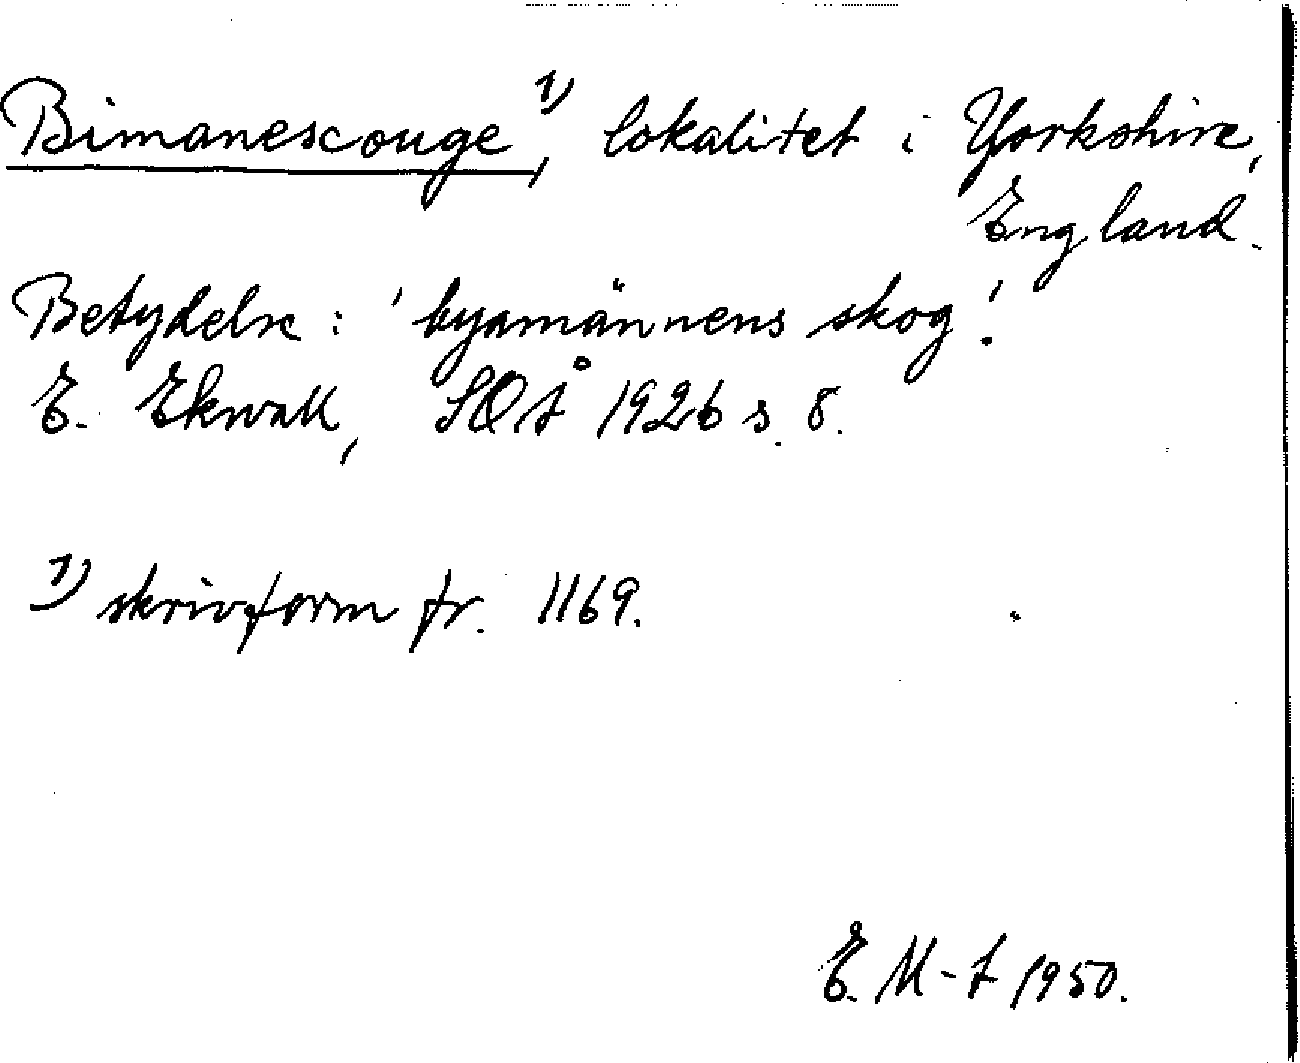 Bimanescouge¹⁾, lokalitet i Yorkshire,
England.
Betydelse: 'byamännens skog'.
E. Ekwall, SOÅ 1926 s. 8.
¹⁾ skrivform fr. 1169.
E. M-t 1950.